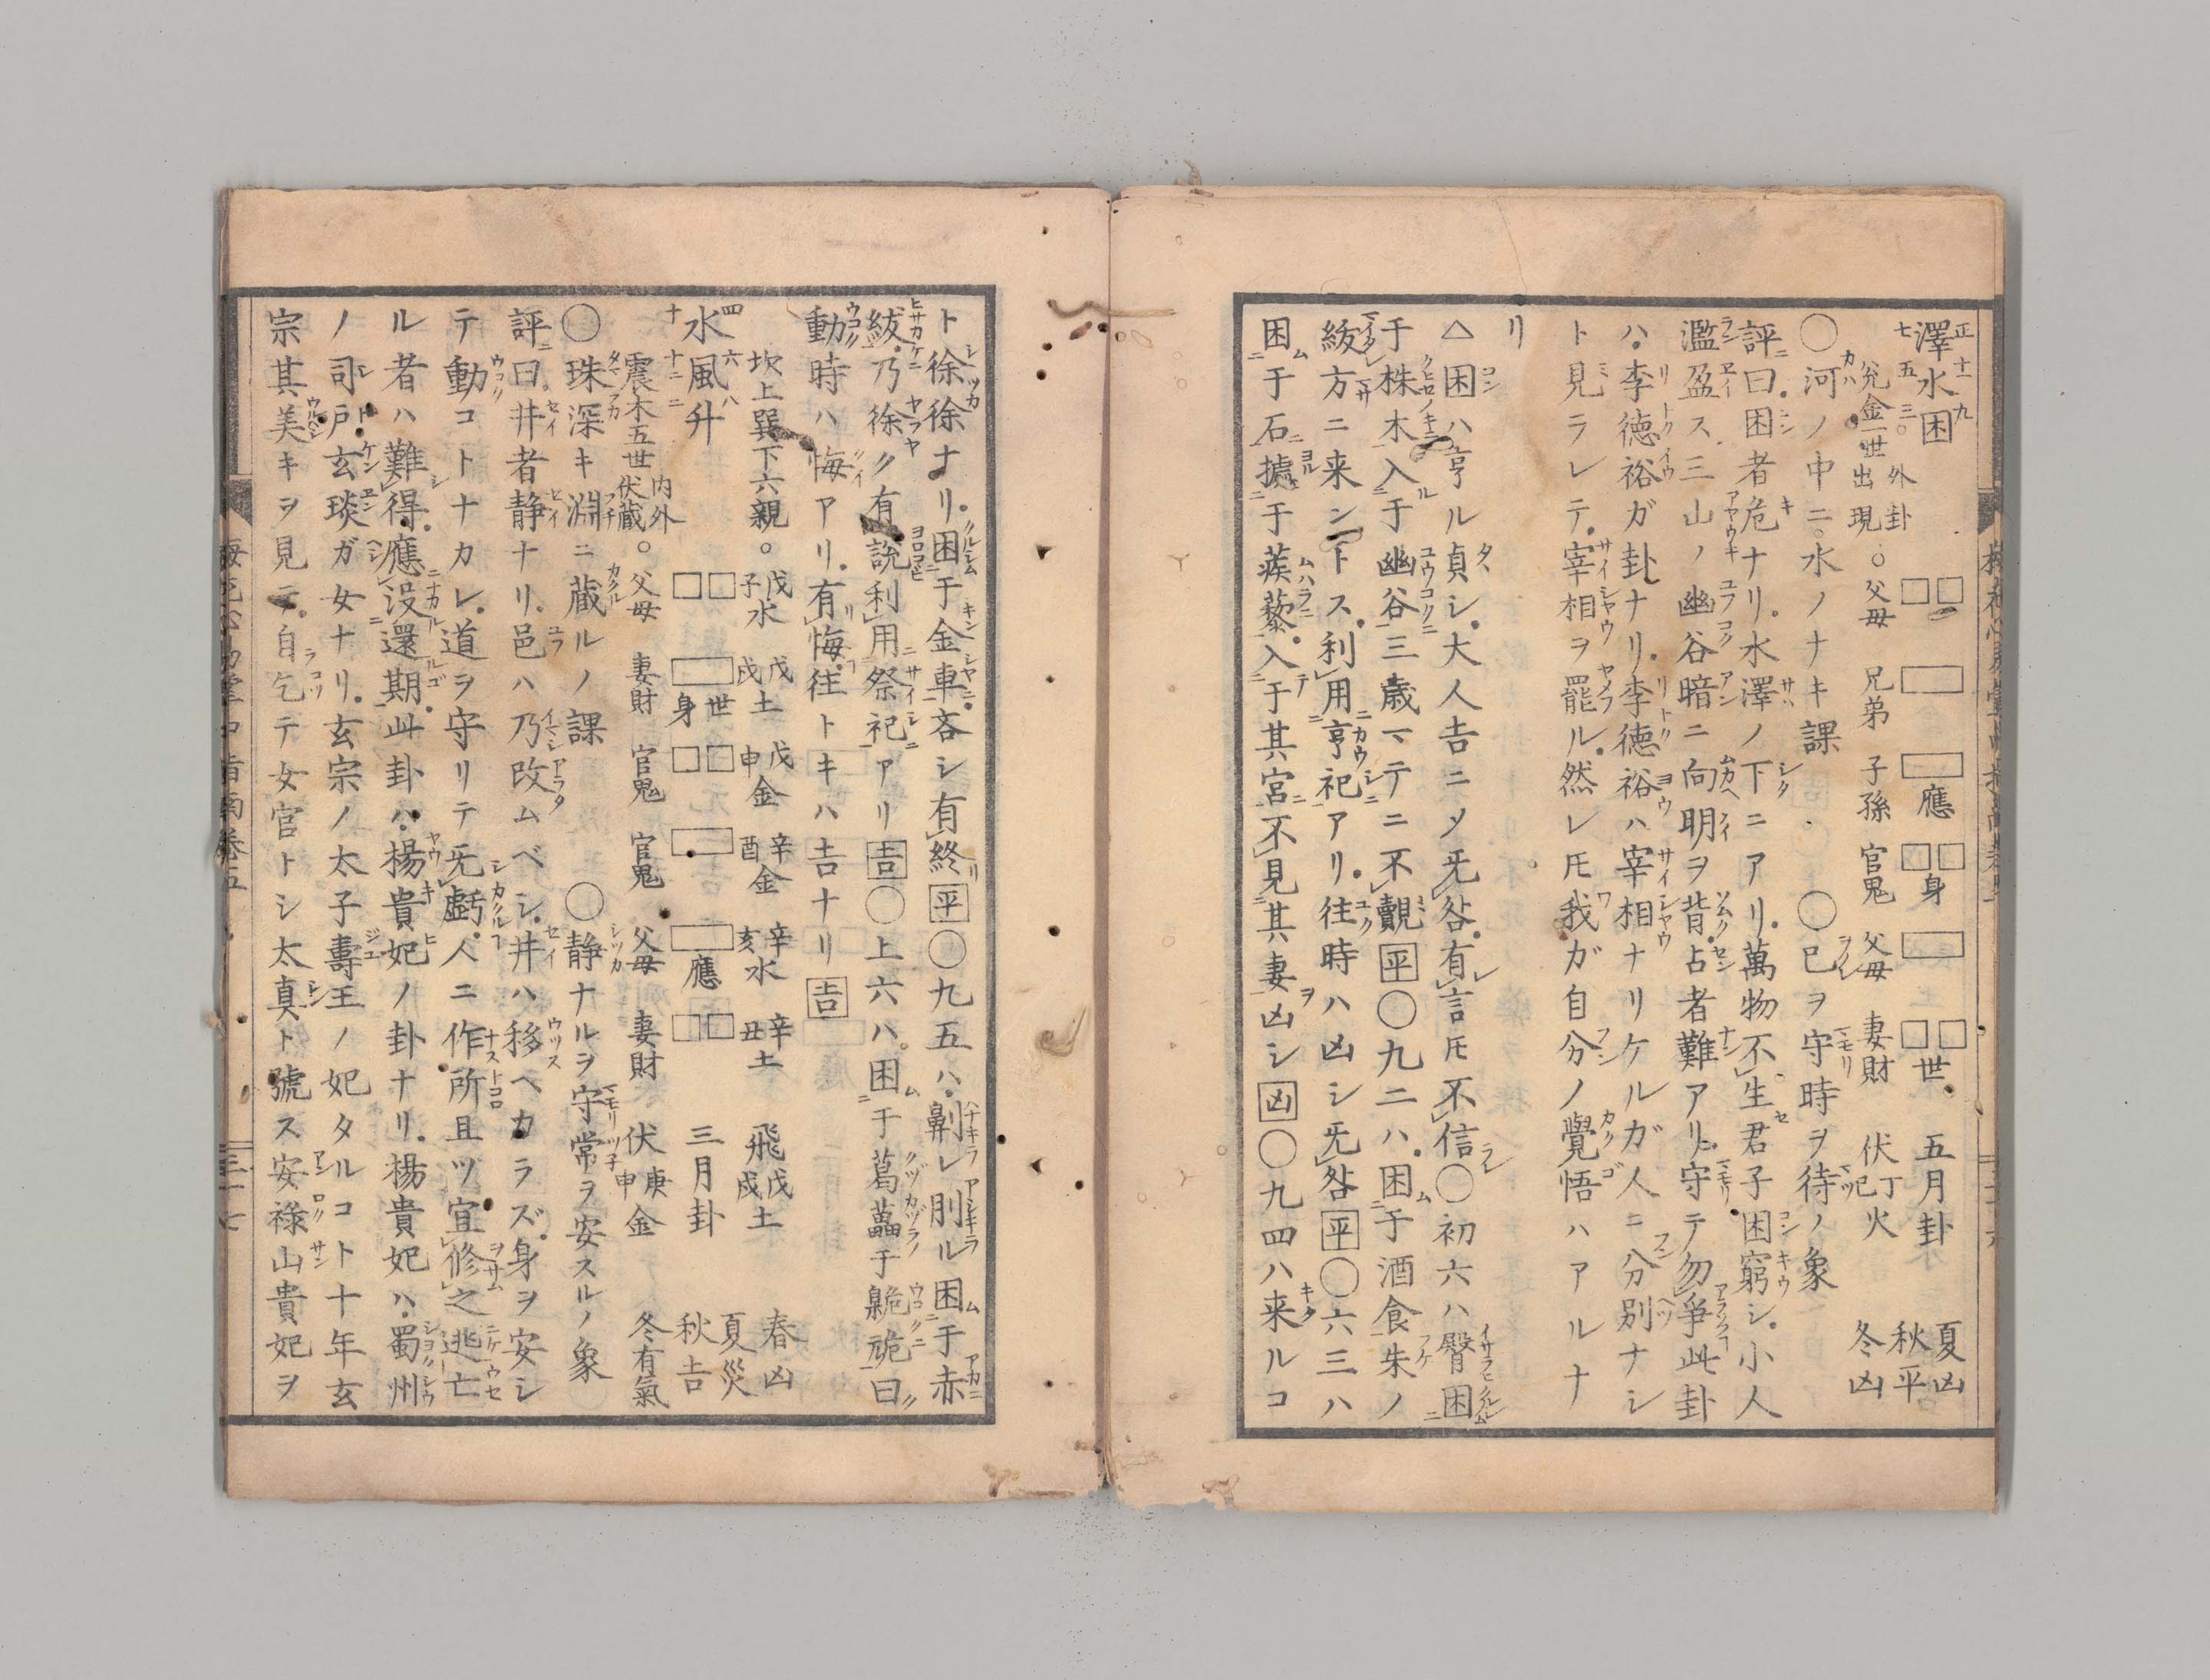 澤水困 外卦 應 身 世 五月卦 夏凶
兌金一世出現○父母 兄弟 子孫 官鬼 父母 妻財 伏丁巳火 秋平 冬凶
○河ノ中ニ水ノナキ課 ○已ヲ守時ヲ待ノ象
評曰困者危ナリ水澤ノ下ニアリ萬物不生君子困窮シ小人
濫盈ス三山ノ幽谷暗ニ向明ヲ背占者難アリ守テ勿爭此卦
ハ李德裕ガ卦ナリ李德裕ハ宰相ナリケルガ人ニ分別ナシ
ト見ラレテ宰相ヲ罷ル然レ𪜈我ガ自分ノ覺悟ハアルナ
リ
△困ハ亨ル貞シ大人吉ニメ旡咎有言𪜈不信○初六ハ臀困
于株木入于幽谷三歳マテニ不覿平○九二ハ困于酒食朱ノ
紱方ニ来ントス利用亨祀アリ往時ハ凶シ旡咎平○六三ハ
困于石據于蒺藜入于其宮不見其妻凶シ凶○九四ハ来ルコ
ト徐徐ナリ困于金車吝シ有終平○九五ハ劓レ刖ル困于赤
紱乃徐ク有說利用祭祀アリ吉○上六ハ困于葛藟于臲卼曰
動時ハ悔アリ有悔往トキハ吉ナリ吉
坎上巽下六親○戊子水 戊戌土 戊申金 辛酉金 辛亥水 辛丑土 飛戊戌土 春凶
水風井 世身 應 三月卦 夏災 秋吉
震木五世内外伏藏○父母 妻財 官鬼 官鬼 父母 妻財 伏庚申金 冬有氣
○珠深キ淵ニ藏ルノ課 ○静ナルヲ守常ヲ安スルノ象
評曰井者静ナリ邑ハ乃改ムベシ井ハ移ヘカラズ身ヲ安シ
テ動コトナカレ道ヲ守リテ旡戯人ニ作所且ツ宜修之逃亡
ル者ハ難得應没還期此卦ハ楊貴妃ノ卦ナリ楊貴妃ハ蜀州
ノ司戸玄琰ガ女ナリ玄宗ノ太子壽王ノ妃タルコト十年玄
宗其美キヲ見テ自乞テ女官トシ太真ト號ス安祿山貴妃ヲ